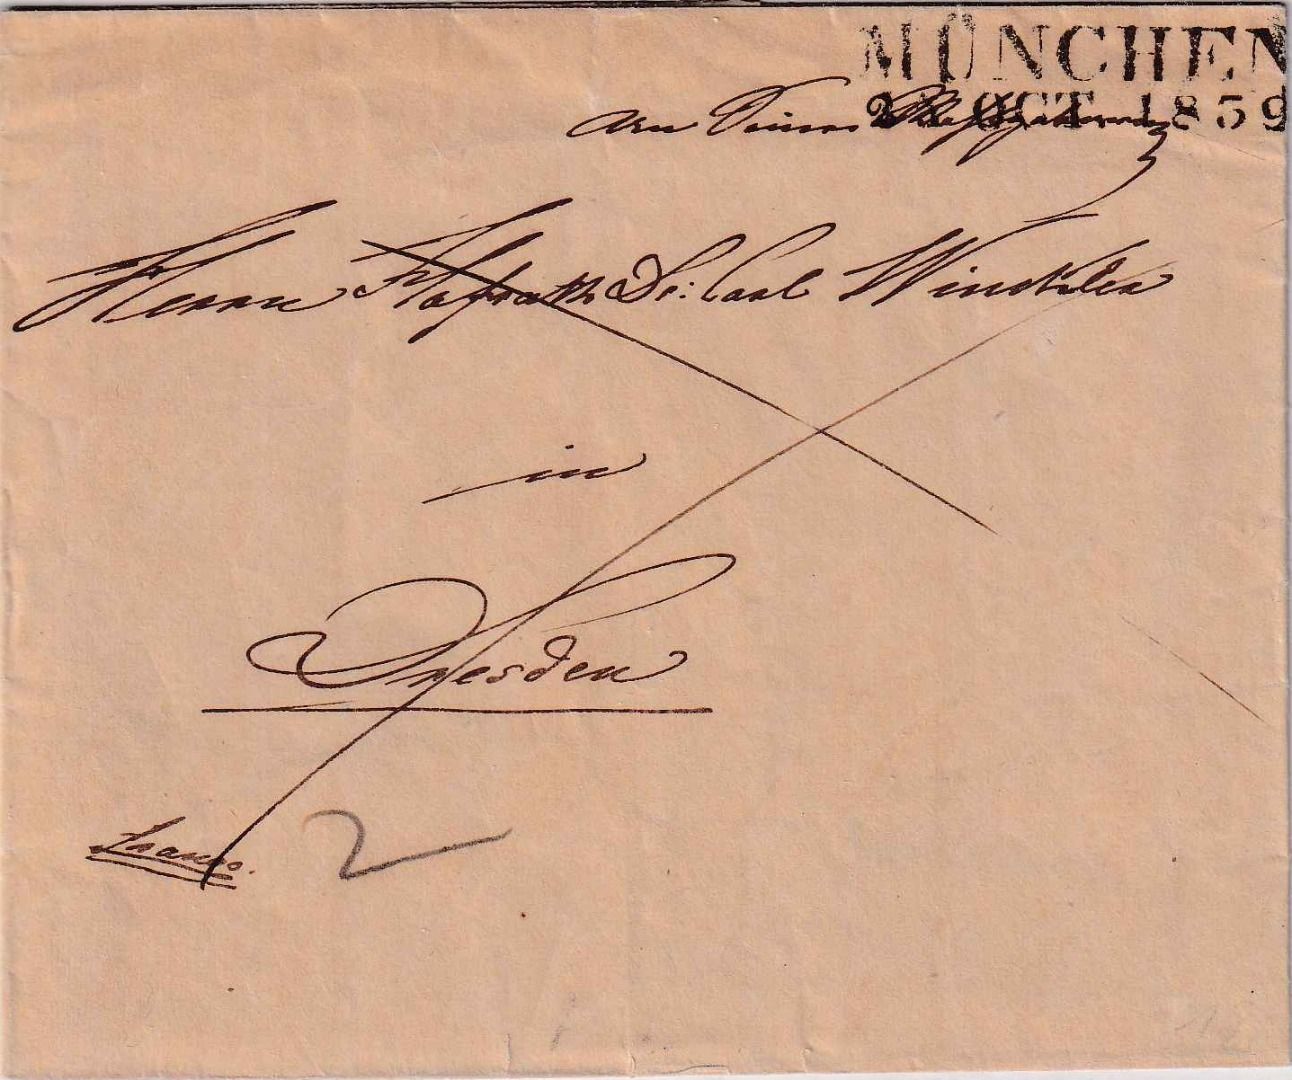 MÜNCHEN
OCT. 1839
an Seine
Herrn Hofrath Dr: Carl Winckler
in
Dresden
franco.
2